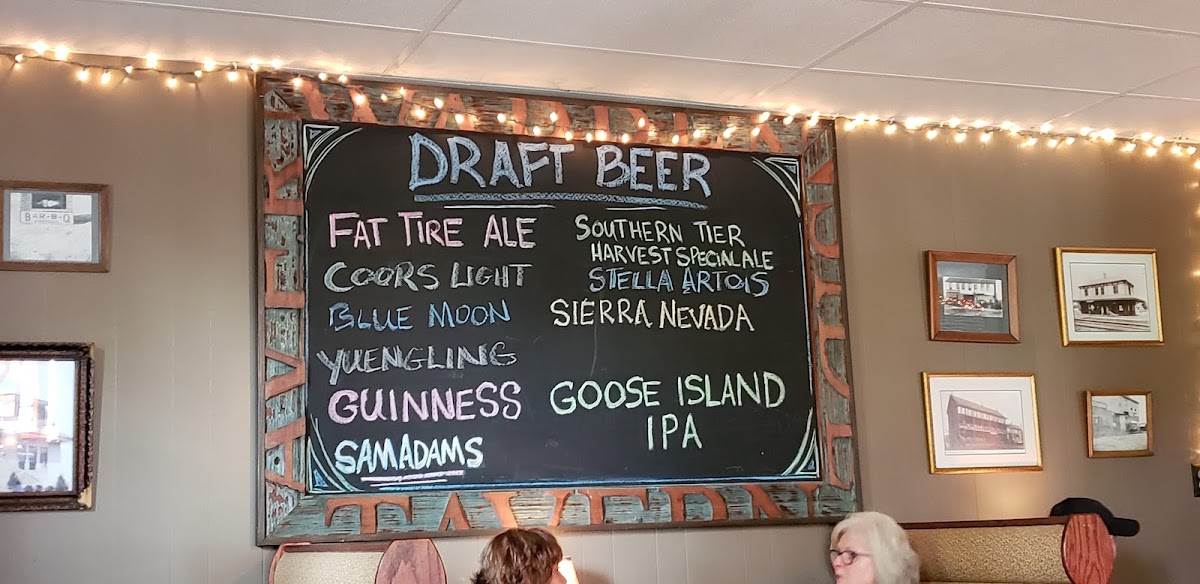 DRAFT BEER
FAT TIRE ALE
COORS LIGHT
BLUE MOON
YUENGLING
GUINNESS
SAMADAMS
SOUTHERN TIER
HARVEST SPECIAL ALE
STELLA ARTOIS
SIERRA NEVADA
GOOSE ISLAND
IPA
TAVERN
BAR-B-Q